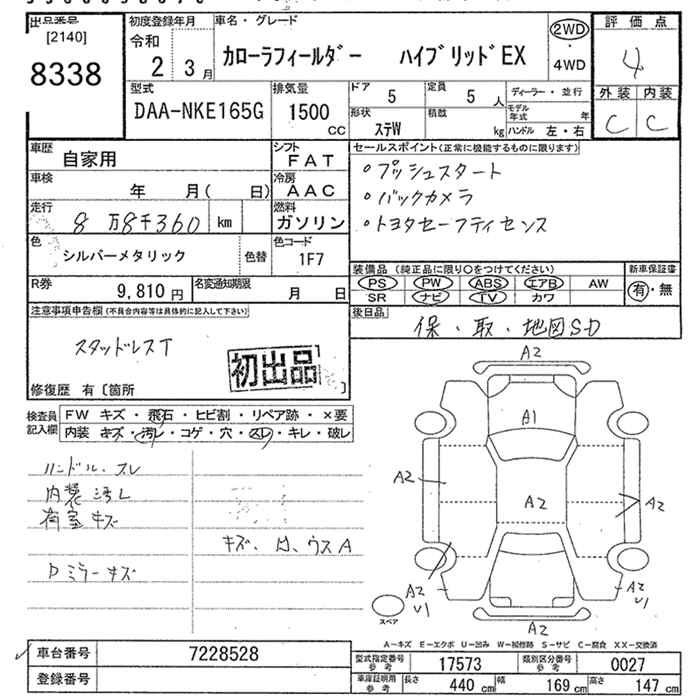 出品番号
[2140]
8338
初度登録年月
令和
2 3月
車名・グレード
カローラフィールダー ハイブリッドEX
2WD
・
4WD
評価点
4
外装 内装
C C
型式
DAA-NKE165G
排気量
1500
cc
ドア
5
定員
5人
ディーラー・並行
モデル年式 年
形状
ステW
積載
kg
ハンドル 左・右
車歴
自家用
シフト
FAT
車検
年 月( 日)
冷房
AAC
走行
8万8千360 km
燃料
ガソリン
色
シルバーメタリック
色替
色コード
1F7
R券
9,810円
名変通知期限
月 日
セールスポイント(正常に機能するものに限ります)
・プッシュスタート
・バックカメラ
・トヨタセーフティセンス
装備品 (純正品に限り○をつけてください)
PS PW ABS エアB AW
SR ナビ TV カワ
新車保証書
有・無
後日品
保・取・地図SD
注意事項申告欄(不具合内容等は具体的に記入して下さい)
スタッドレスT
初出品
修復歴 有〔箇所 〕
検査員
記入欄
FW キズ・飛石・ヒビ割・リペア跡・×要
内装 キズ・汚レ・コゲ・穴・スレ・キレ・破レ
ハンドル・スレ
内装汚レ
荷室キズ
キズ、凹、ウスA
Dミラーキズ
A2
A1
A2
A2
A2
A2
U1
A2
U1
A2
スペア
A-キズ E-エクボ U-凹み W-補修跡 S-サビ C-腐食 XX-交換済
車台番号
7228528
登録番号
型式指定番号
参考
17573
類別区分番号
参考
0027
車庫証明用
参考
長さ 440cm 幅 169cm 高さ 147cm